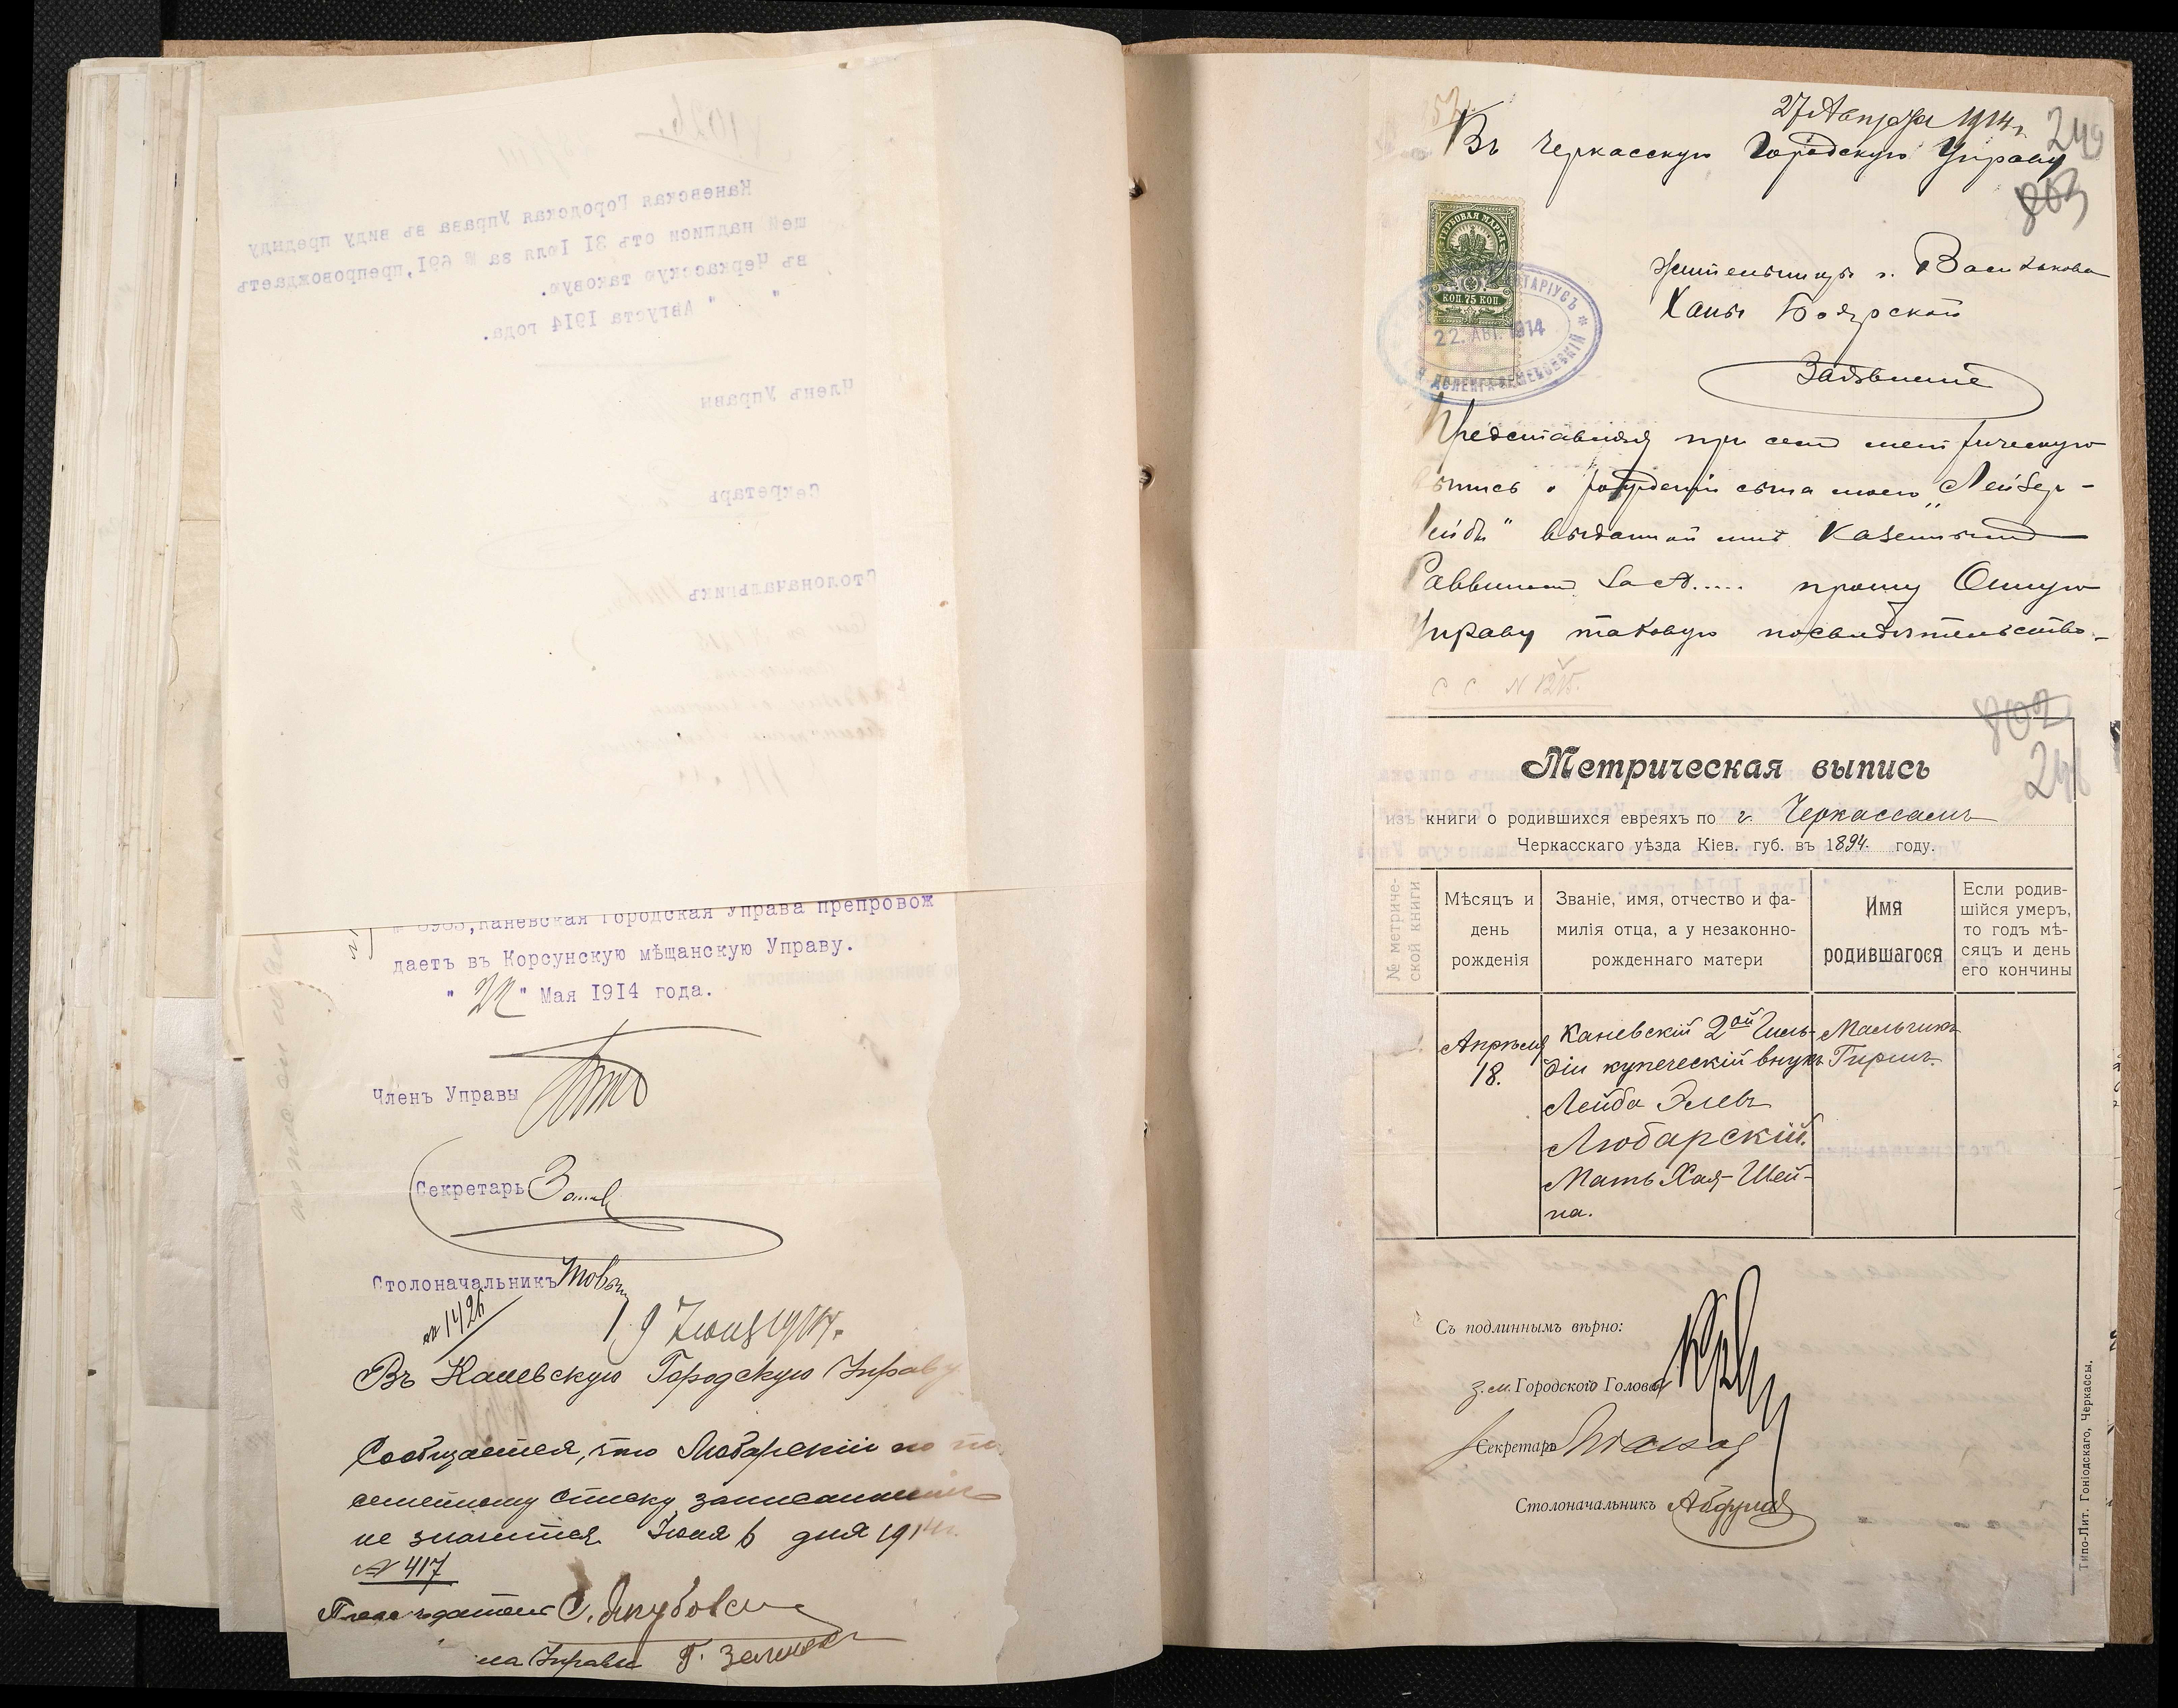 Каневская Городская Управа въ виду предиду
щей надписи отъ 31 Іюля за № 691, препровождаетъ
въ Черкасскую таковую.
" " Августа 1914 года.
Членъ Управы
Секретарь
Столоначальникъ
Каневская Городская Управа препровож
даетъ въ Корсунскую мѣщанскую Управу.
" 22 " Мая 1914 года.
Членъ Управы
Секретарь
Столоначальникъ
№ 1426
19 Іюня 1914.
Въ Каневскую Городскую Управу
Сообщается, что Любарскій по
семейному списку записаннымъ
не значится Іюня 6 дня 1914 г.
№ 417
С. Якубовск
на Управы Г.
27 Августа 1914 г.
249
Въ Черкасскую Городскую Управу
803
ГЕРБОВАЯ МАРКА
КОП. 75 КОП.
22. АВГ. 1914
Жительницы г. Василькова
Ханы Боярской
Заявленіе
Представляя при семъ метрическую
выпись о рожденіи сына моего „Лейбер-
выданной мнѣ Казеннымъ
Раввиномъ прошу Оную
Управу таковую посвидѣтельство-
С С N 1215.
802
248
Метрическая выпись
изъ книги о родившихся евреяхъ по г. Черкассамъ
Черкасскаго уѣзда Кіев. губ. въ 1894 году.
№ метриче-
ской книги
Мѣсяцъ и
день
рожденія
Званіе, имя, отчество и фа-
милія отца, а у незаконно-
рожденнаго матери
Имя
родившагося
Если родив-
шійся умеръ,
то годъ мѣ-
сяцъ и день
его кончины
Апрѣля
18.
Каневскій 2ой Гиль-
діи купеческій внукъ
Лейба Элевъ
Любарскій.
Мать Хая-Шей-
на.
Мальчикъ
Гершъ.
Съ подлиннымъ вѣрно:
з.м. Городского Головы
Секретарь
Столоначальникъ
Типо-Лит. Гоніодскаго, Черкассы.